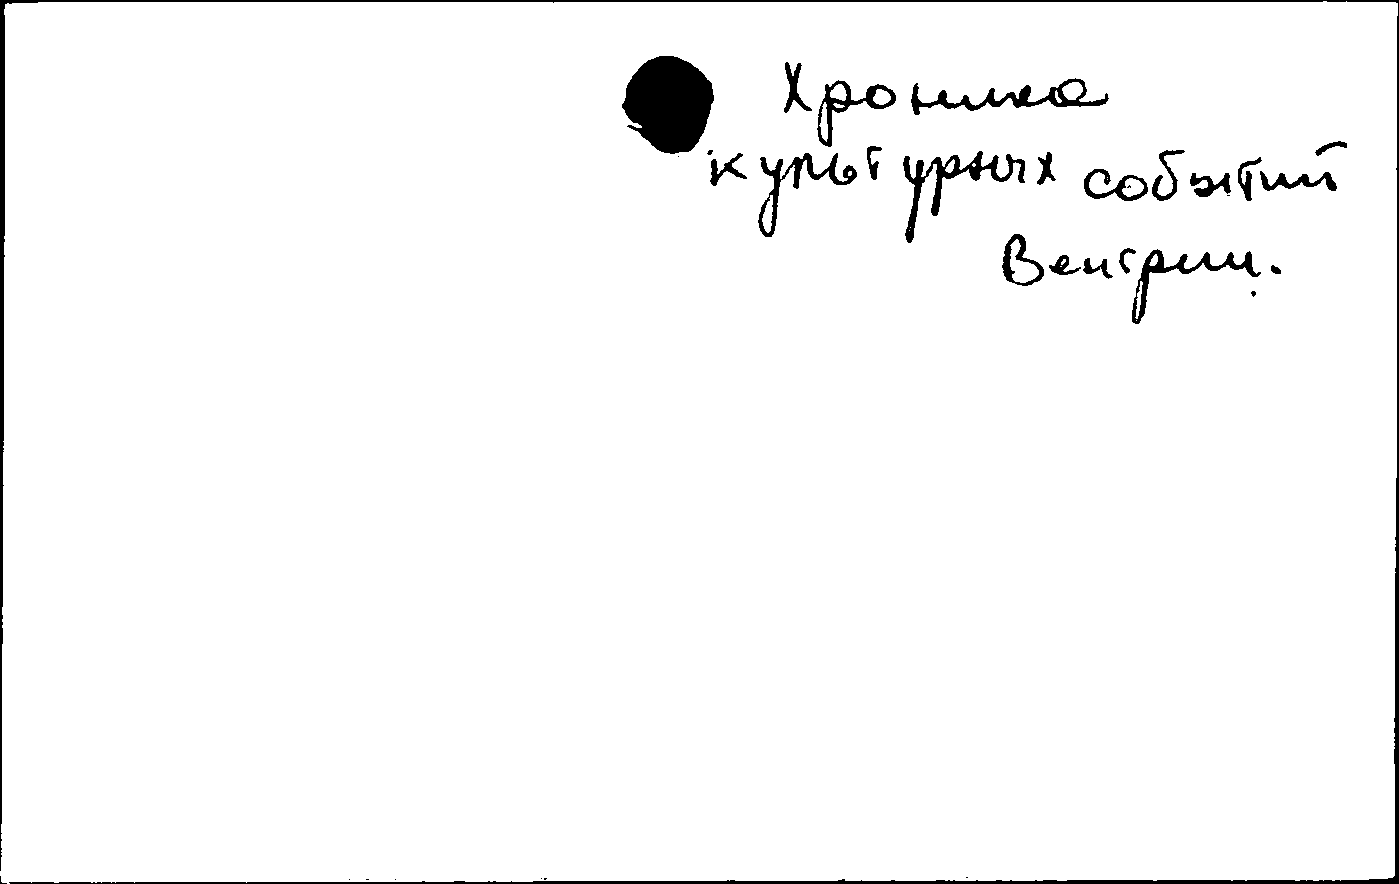 Хроника
культурных событий
Венгрии.